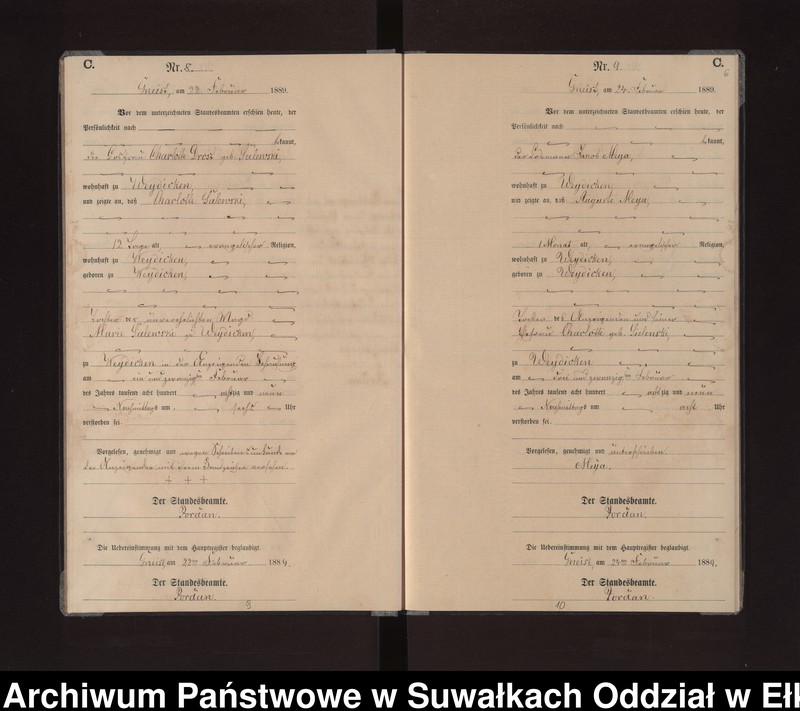 C.
Nr. 8.
Gneist, am 22. Februar 1889.
Vor dem unterzeichneten Standesbeamten erschien heute, der
Persönlichkeit nach
kannt,
die Charlotte Drost geb. Galewski,
wohnhaft zu Weydicken,
und zeigte an, daß Charlotte Galewski,
12 Tage alt, evangelischer Religion,
wohnhaft zu Weydicken,
geboren zu Weydicken,
Tochter der unverehelichten Magd
Marie Galewski zu Weydicken
zu Weydicken in der Anzeigenden Behausung
am ein und zwanzigsten Februar
des Jahres tausend acht hundert achtzig und neun
Nachmittags um sechs Uhr
verstorben sei.
Vorgelesen, genehmigt und wegen Schreibensunkunde von
der Anzeigenden mit ihrem Handzeichen versehen.
+ + +
Der Standesbeamte.
Jordan.
Die Uebereinstimmung mit dem Hauptregister beglaubigt.
Gneist, am 22ten Februar 1889.
Der Standesbeamte.
Jordan.
9
C.
6
Nr. 9
Gneist, am 24. Februar 1889.
Vor dem unterzeichneten Standesbeamten erschien heute, der
Persönlichkeit nach
kannt,
der Jacob Meya,
wohnhaft zu Weydicken,
und zeigte an, daß Auguste Meya,
1 Monat alt, evangelischer Religion,
wohnhaft zu Weydicken,
geboren zu Weydicken,
Tochter des Anzeigenden und seiner
Ehefrau Charlotte geb.
zu Weydicken
am drei und zwanzigsten Februar
des Jahres tausend acht hundert achtzig und neun
Nachmittags um acht Uhr
verstorben sei.
Vorgelesen, genehmigt und unterschrieben
Meya.
Der Standesbeamte.
Jordan.
Die Uebereinstimmung mit dem Hauptregister beglaubigt.
Gneist, am 24ten Februar 1889.
Der Standesbeamte.
Jordan.
10
Archiwum Państwowe w Suwałkach Oddział w Ełk